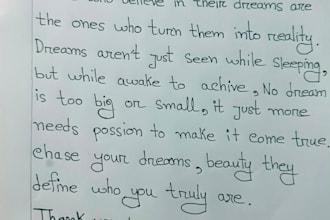 believe in their dreams are
the ones who turn them into reality.
Dreams aren't just seen while sleeping,
but while awake to achive, No dream
is too big or small, it just more
needs possion to make it come true.
chase your dreams, beauty they
define who you truly are.